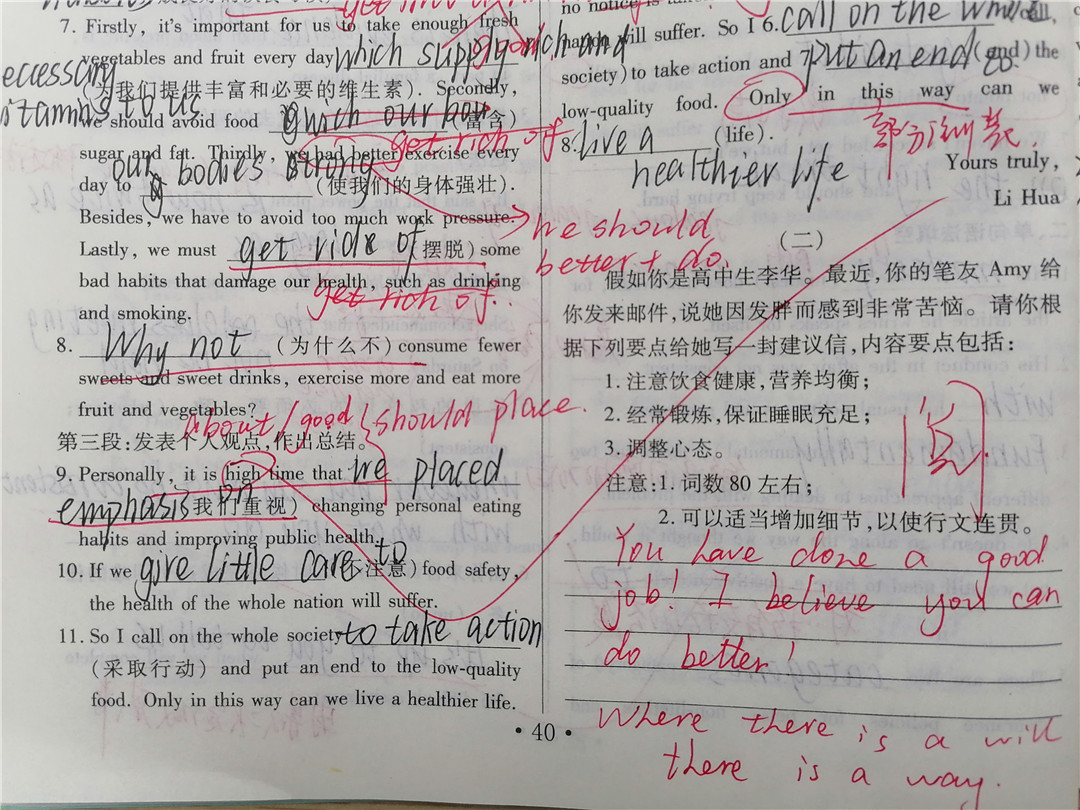 7. Firstly, it's important for us to take enough fresh
vegetables and fruit every day which supply rich and
necessary vitamins to us
(为我们提供丰富和必要的维生素). Secondly,
we should avoid food which our (富含)
sugar and fat. Thirdly, we had better exercise every
get rich of
day to our bodies strong (使我们的身体强壮).
Besides, we have to avoid too much work pressure.
we should
better + do.
Lastly, we must get ride of (摆脱) some
bad habits that damage our health, such as drinking
get rich of.
and smoking.
8. Why not (为什么不) consume fewer
sweets and sweet drinks, exercise more and eat more
fruit and vegetables?
about / good should place.
第三段:发表个人观点,作出总结。
9. Personally, it is high time that we placed
emphasis on 我们重视) changing personal eating
habits and improving public health.
10. If we give little care to 注意) food safety,
the health of the whole nation will suffer.
11. So I call on the whole society to take action
(采取行动) and put an end to the low-quality
food. Only in this way can we live a healthier life.
no notice is
nation will suffer. So I 6. call on the whole
society) to take action and 7 put an end (and) the
low-quality food. Only in this way can we
8. live a (life).
healthier life
部分倒装.
Yours truly,
Li Hua
(二)
假如你是高中生李华。最近,你的笔友 Amy 给
你发来邮件,说她因发胖而感到非常苦恼。请你根
据下列要点给她写一封建议信,内容要点包括:
1. 注意饮食健康,营养均衡;
2. 经常锻炼,保证睡眠充足;
3. 调整心态。
注意:1. 词数 80 左右;
2. 可以适当增加细节,以使行文连贯。
You have done a good
job! I believe you can
do better!
Where there is a will
there is a way.
• 40 •